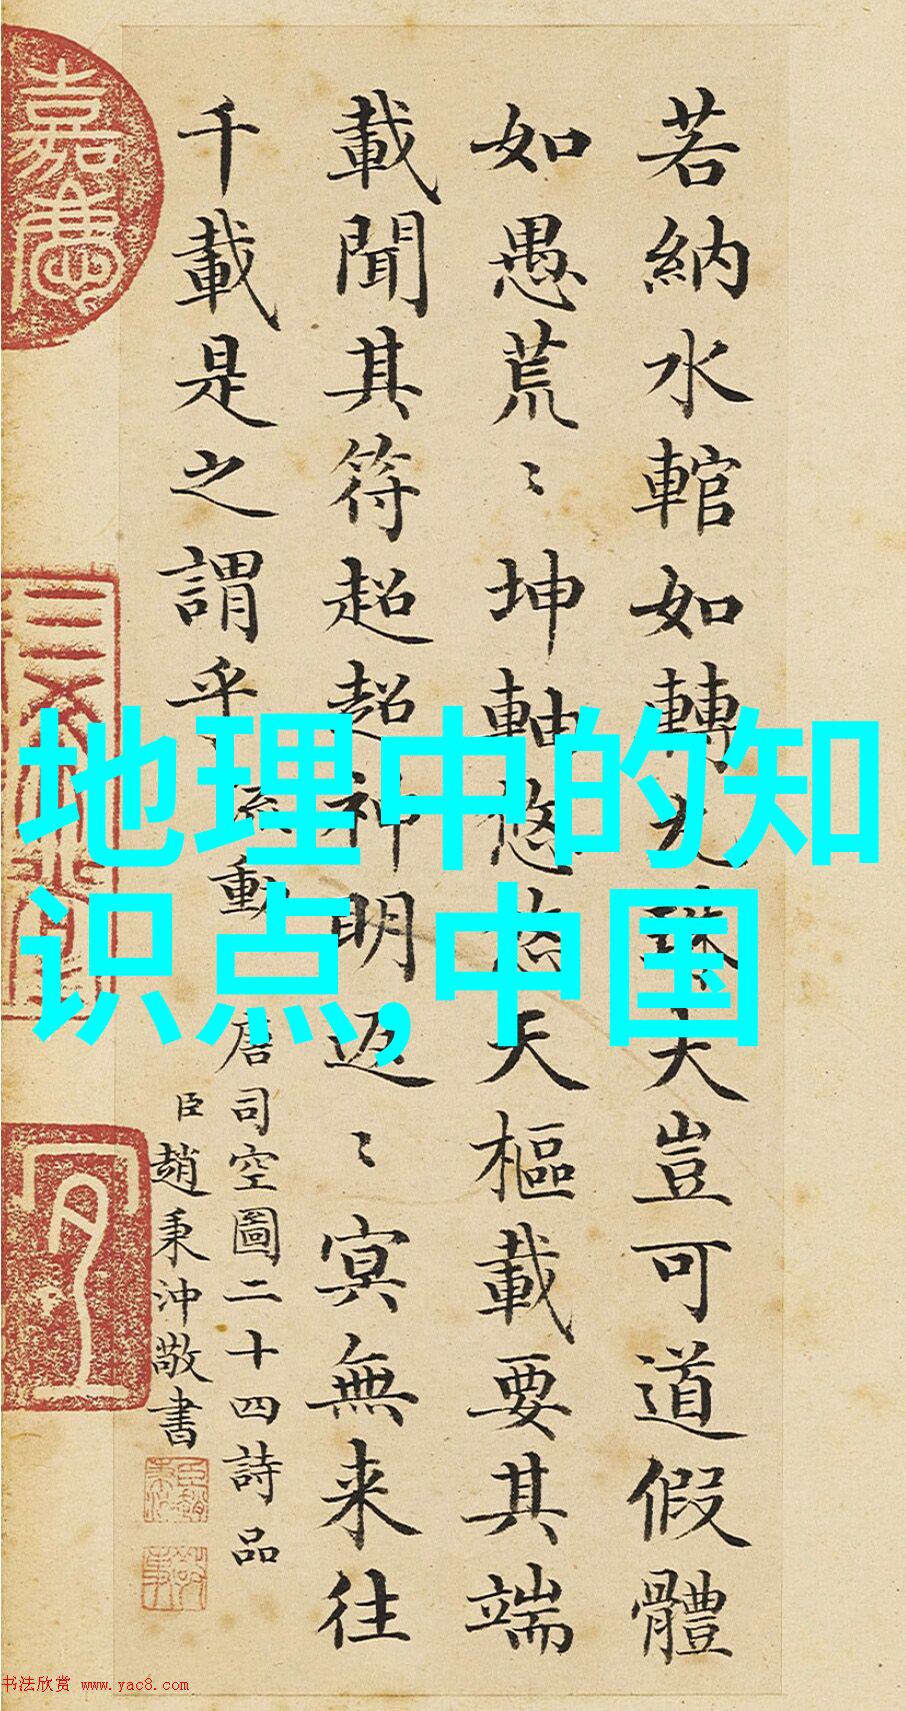 若納水輨如轉丸珠夫豈可道假體
如愚荒〻坤軸悠悠天樞載要其端
載聞其符超超神明返〻冥無来往
千載是之謂乎 流動
唐司空圖二十四詩品
臣趙秉沖敬書
地理中的知
识点,中国
书法欣赏 www.yac8.com